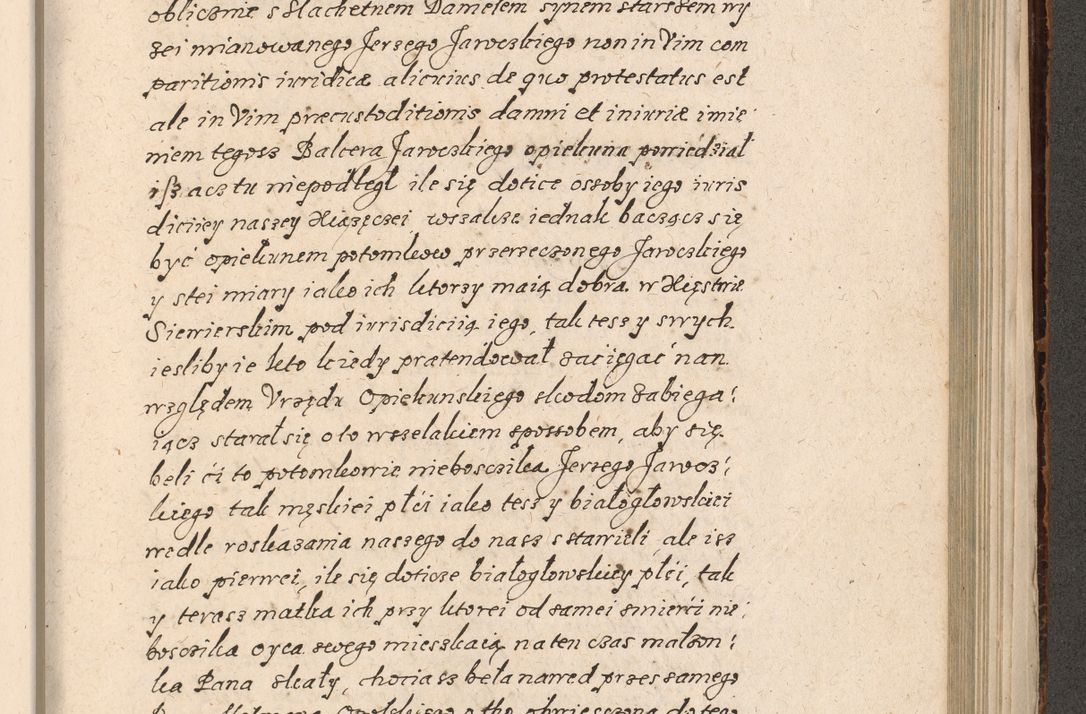 oblicznie s slachetnem Danielem synem starszem wy
szei mianowanego Jerzego Jaroczkiego non in Vim com
paritionis iuridicæ alicuius de quo protestatus est
ale in Vim præcustoditionis damni et iniuriæ imie
niem tegosz Balcera Jaroczkiego opiekuna powiedział
isz acz tu niepodległ ile się dotice ossoby iego iuris
diciiey naszey Xiązęczei, wszakze iednak bacząc się
być opiekunem potomkow przerzeczonego Jaroczkiego
y stei miary iako ich ktorzy maią dobra w Xięstwie
Siewierskim pod iurisdiciią iego, tak tesz y swych
iesliby ie kto kiedy prætendował zaciegać nan
względem Vrzędu Opiekunskiego skodom zabiega
iącz starał się o to wszelakiem sposobem, aby się
beli ći to potomkowie niebosczika Jerzego Jarocz
kiego tak męskiei płći iako tesz y białogłowskiei
wedle roskazania naszego do nasz stawieli, ale isz
iako pierwei, ile się doticze białogłowskiey płći, tak
y terasz matka ich przy ktorei od samei smierći nie
boscika oyca swego mieszkaią na ten czas malzon
ka Pana Skały, chociasz beła nawed przes samego